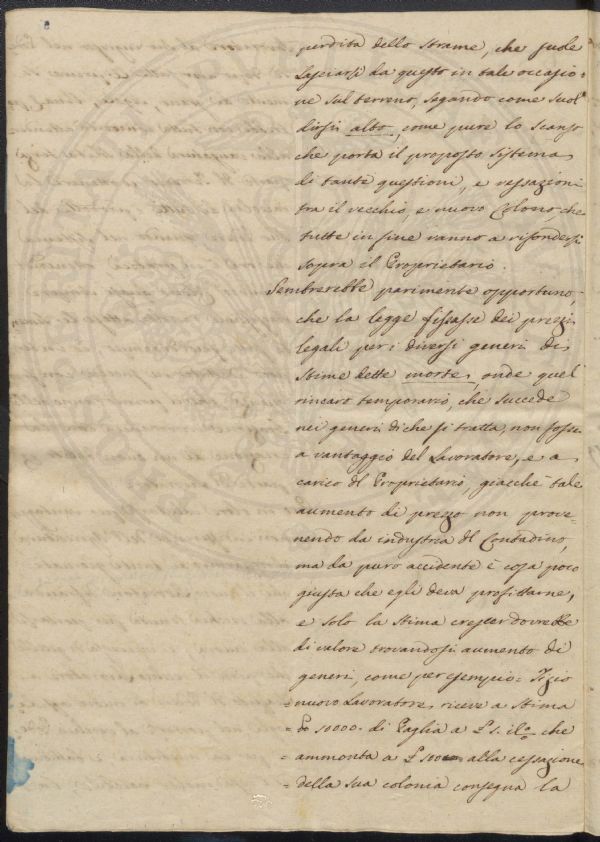 perdita dello strame, che suole
lasciarsi da questo in tale occasio=
ne sul terreno, segando come suol
dirsi alto, come pure lo scanso
che porta il proposto sistema
di tante questioni, e vessazioni
tra il vecchio, e nuovo Colono, che
tutte in fine vanno a rifondersi
sopra il Proprietario.
Sembrerebbe parimente opportuno,
che la legge fissasse dei prezzi
legali per i diversi generi di
stime dette morte, onde quel
rincaro temporario, che succede
nei generi di che si tratta, non fosse
a vantaggio del Lavoratore, e a
carico del Proprietario, giacchè tale
aumento di prezzo non prove=
nendo da industria del Contadino,
ma da puro accidente è cosa poco
giusta che egli deva profittarne,
e solo la stima crescer dovrebbe
di valore trovandosi aumento di
generi, come per esempio = Tizio
= nuovo Lavoratore, riceve a stima
= 10000. di Paglia a £ 1. il che
= ammonta a £ 100 alla cessazione
= della sua colonia consegna la